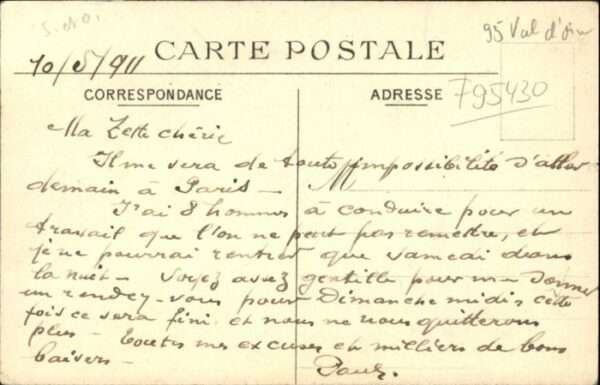 S.etO.
95 Val d'oise
10/5/911
CARTE POSTALE
CORRESPONDANCE
ADRESSE
795430
Ma chérie
Il me sera de toute impossibilité d'aller
demain à Paris —
J'ai 8 hommes à conduire pour un
travail que l'on ne peut pas remettre, et
je ne pourrai rentrer que samedi dans
la nuit — Soyez assez gentille pour me donner
un rendez-vous pour Dimanche midi cette
fois ce sera fini et nous ne nous quitterons
plus — Toutes mes excuses et milliers de bons
baisers —
Paul.